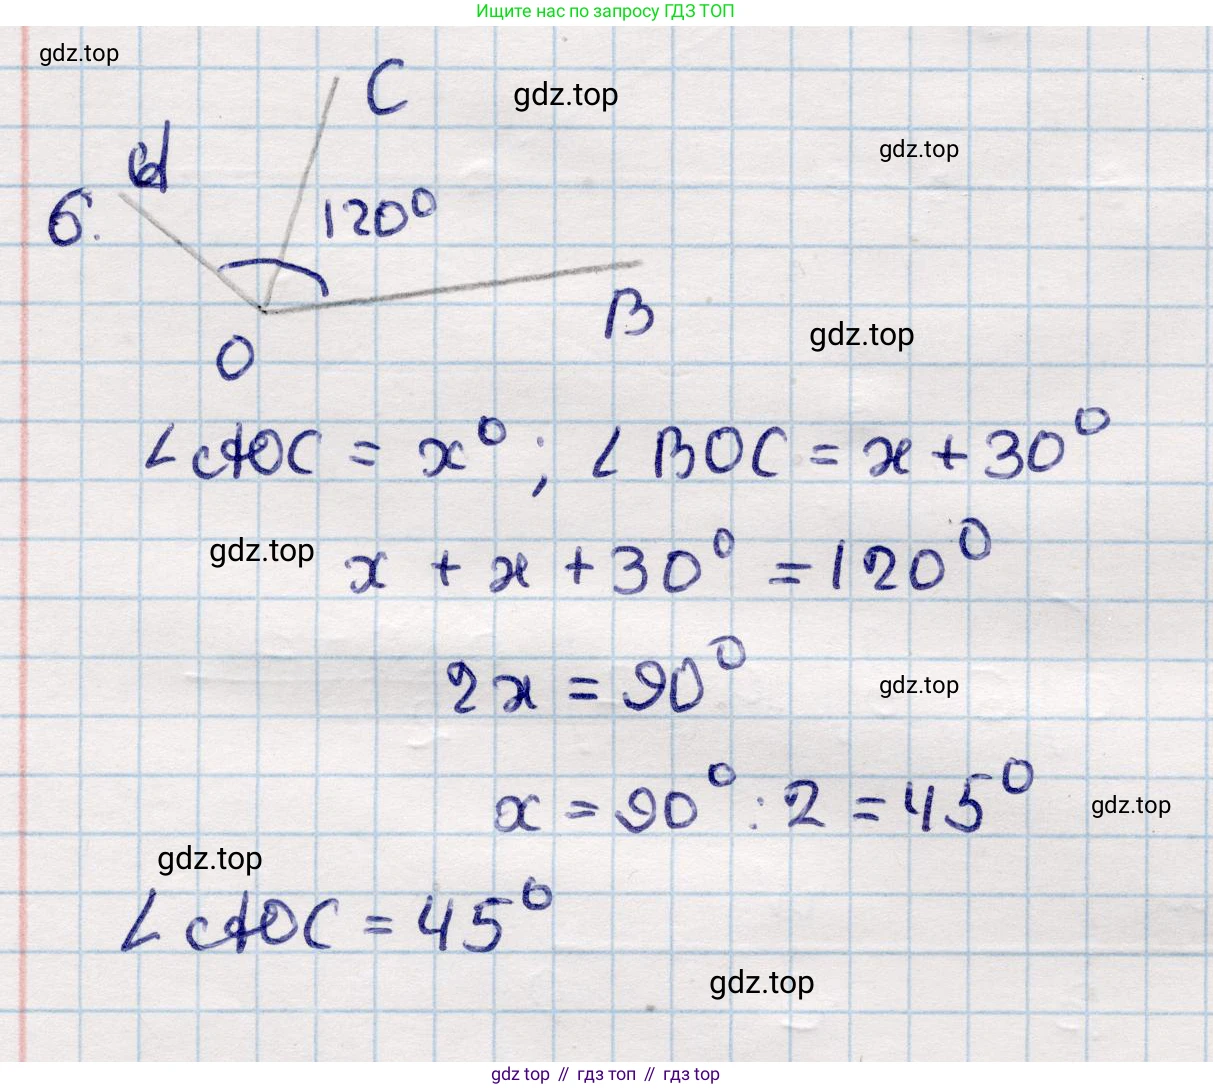 Ищите нас по запросу ГДЗ ТОП
gdz.top
C
gdz.top
A
gdz.top
6.
120°
B
gdz.top
O
∠AOC = x°; ∠BOC = x + 30°
gdz.top
x + x + 30° = 120°
2x = 90°
gdz.top
x = 90° : 2 = 45°
gdz.top
gdz.top
∠AOC = 45°
gdz.top
gdz top // гдз топ // gdz top